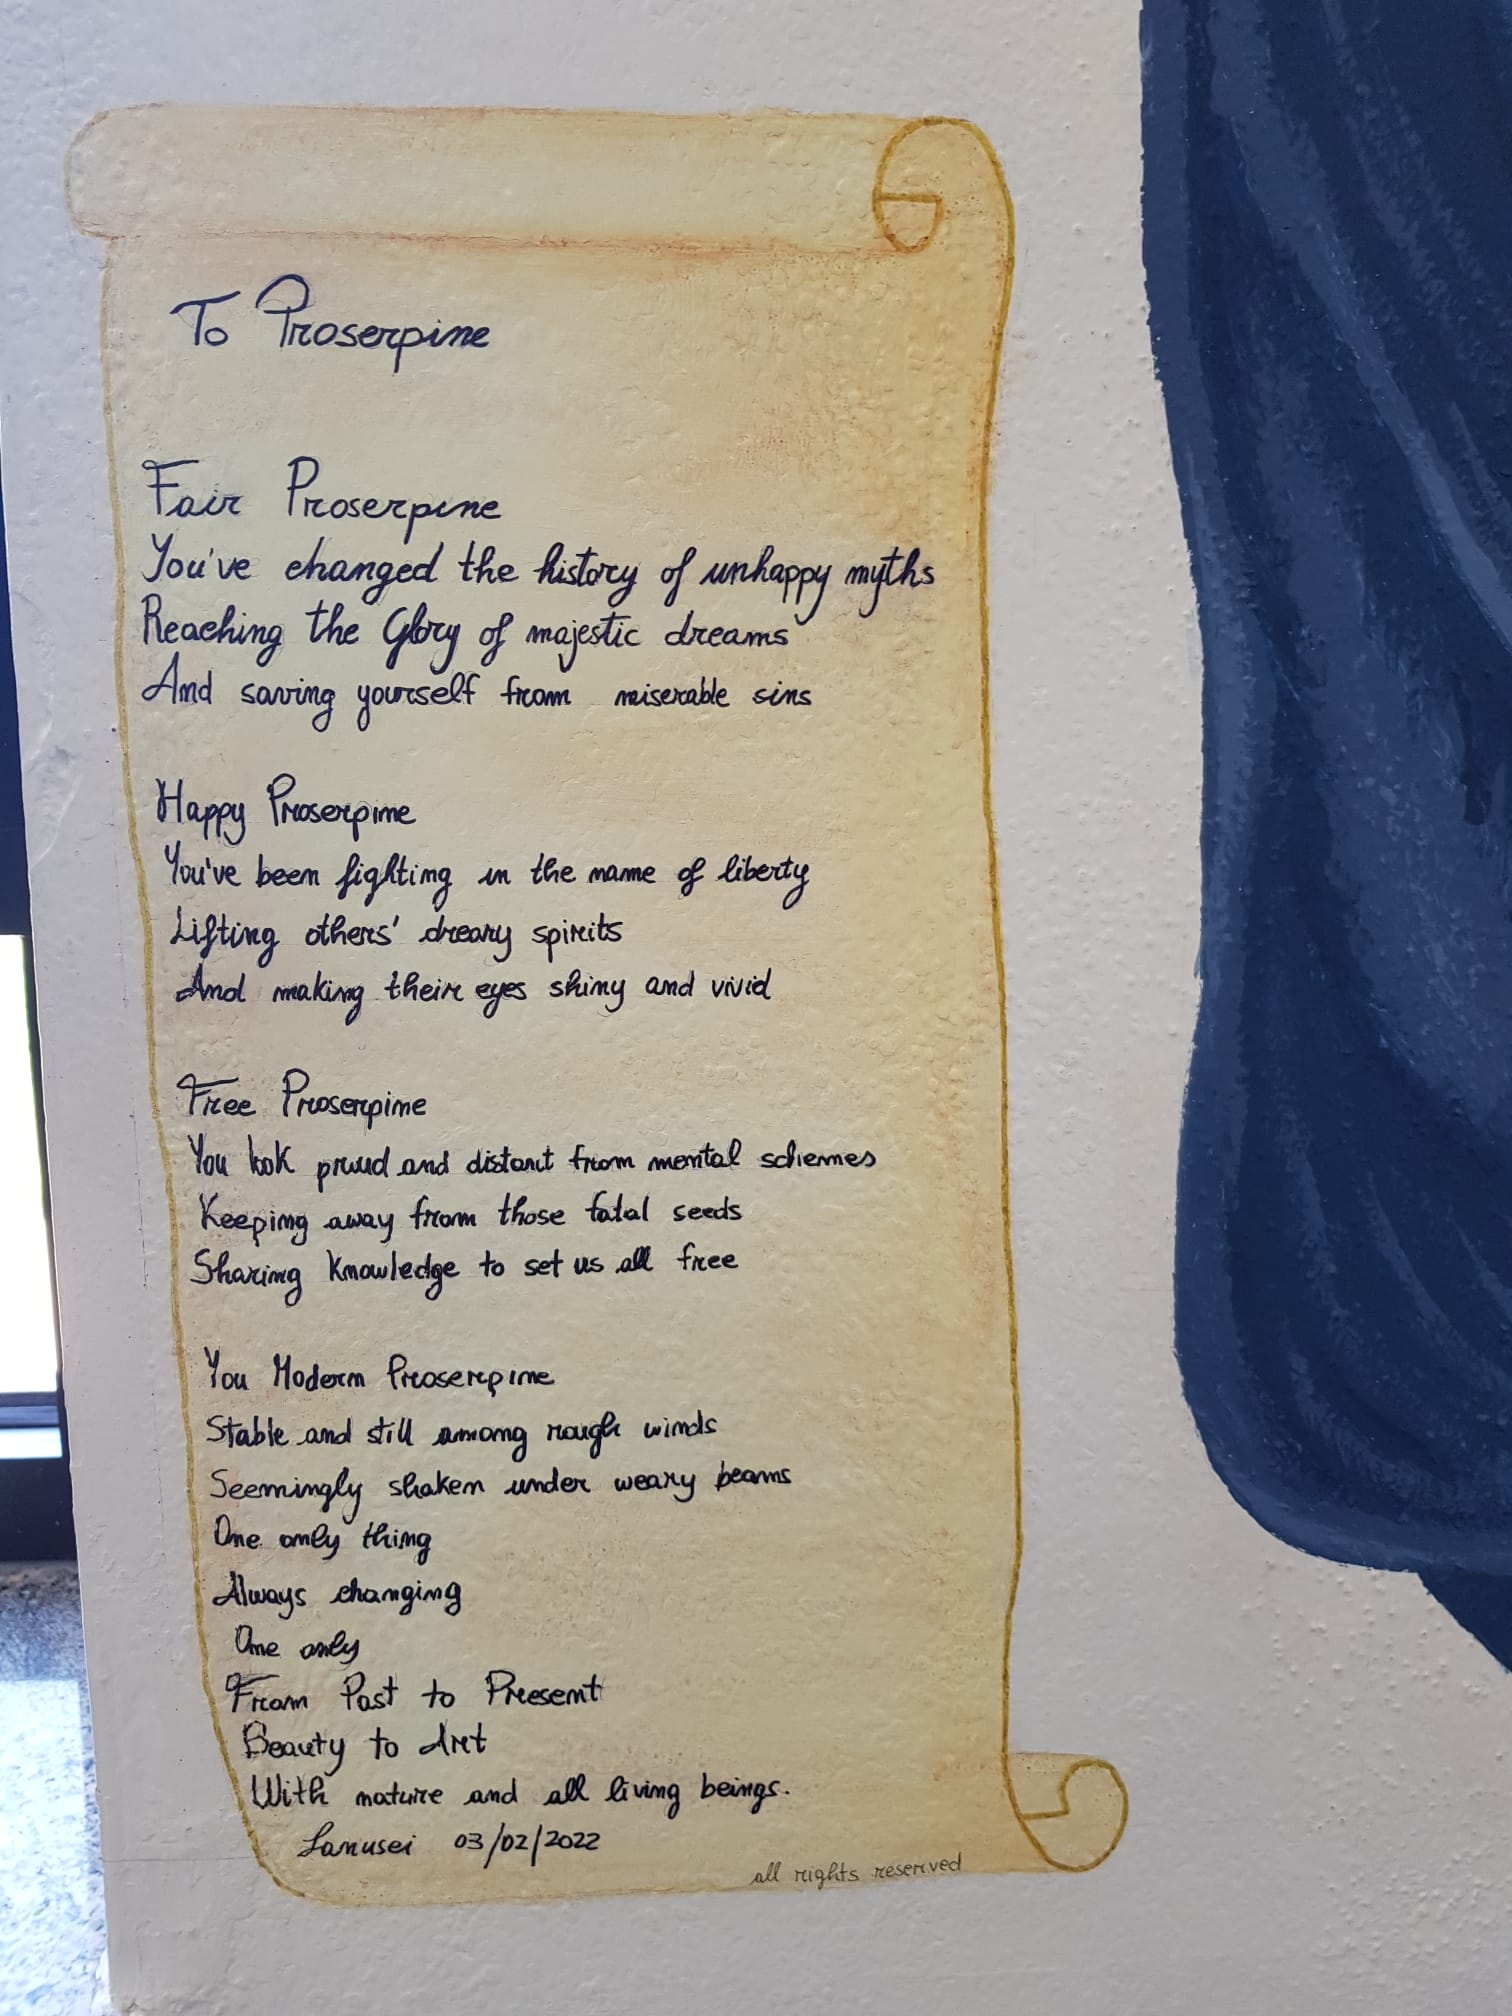 To Proserpine
Fair Proserpine
You've changed the history of unhappy myths
Reaching the Glory of majestic dreams
And saving yourself from miserable sins
Happy Proserpine
You've been fighting in the name of liberty
Lifting others' dreary spirits
And making their eyes shiny and vivid
Free Proserpine
You look proud and distant from mental schemes
Keeping away from those fatal seeds
Sharing Knowledge to set us all free
You Modern Proserpine
Stable and still among rough winds
Seemingly shaken under weary beams
One only thing
Always changing
One only
From Past to Present
Beauty to Art
With nature and all living beings.
Lanusei 03/02/2022
all rights reserved